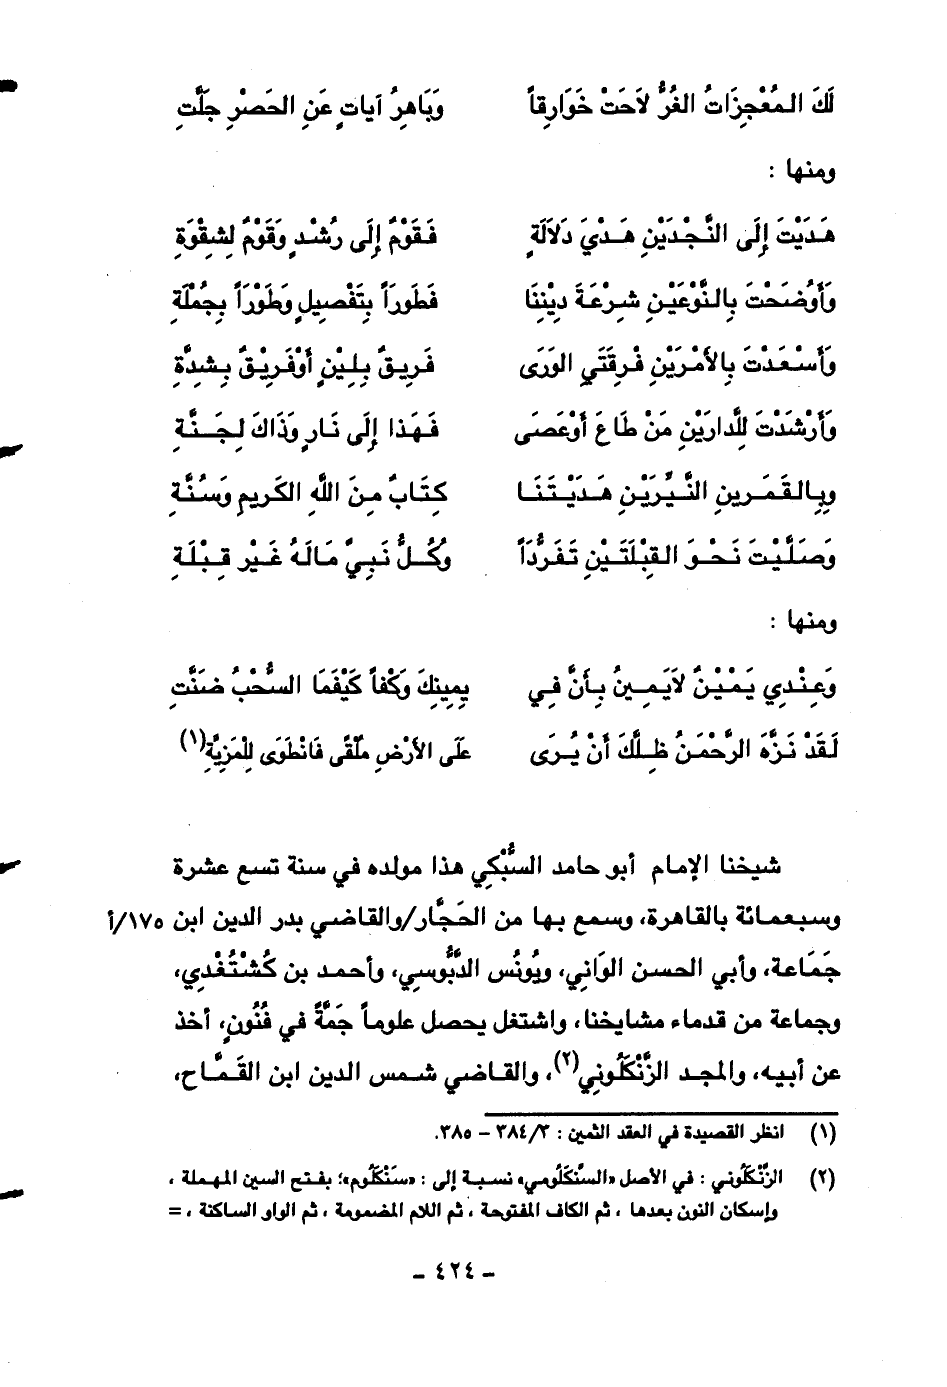 لَكَ المُعْجِزَاتُ الغُرُّ لاَحَتْ خَوَارِقاً وَبَاهِرُ آيَاتٍ عَنِ الحَصْرِ جَلَّتِ
ومنها :
هَدَيْتَ إِلَى النَّجْدَيْنِ هَدْيَ دَلاَلَةٍ فَقَوْمٌ إِلَى رُشْدٍ وَقَوْمٌ لِشِقْوَةِ
وَأَوْضَحْتَ بِالنَّوْعَيْنِ شِرْعَةَ دِيْنِنَا فَطَوْرَاً بِتَفْصِيلٍ وَطَوْرَاً بِجُمْلَةِ
وَأَسْعَدْتَ بِالأَمْرَيْنِ فِرقَتَيِ الوَرَى فَرِيقٌ بِلِيْنٍ أَوْفَرِيْقٌ بِشِدَّةِ
وَأَرْشَدْتَ لِلَّدارَيْنِ مَنْ طَاعَ أَوْعَصَى فَهَذَا إِلَى نَارٍ وَذَاكَ لِجَنَّةِ
وبِالقَمَرينِ النَّيِّرَيْنِ هَدَيْتَنَا كِتَابٌ مِنَ اللَّهِ الكَرِيمِ وَسُنَّةِ
وَصَلَّيْتَ نَحْوَ القِبْلَتَيْنِ تَفَرُّدَاً وَكُلُّ نَبِيٍّ مَالَهُ غَيْر قِبْلَةِ
ومنها :
وَعِنْدِي يَمْيْنٌ لاَيَمِينُ بِأَنَّ فِي يمِينِكَ وَكْفاً كَيْفَمَا السُّحْبُ ضَنَّتِ
لَقَدْ نَزَّهَ الرَّحْمَنُ ظِلَّكَ أَنْ يُرَى عَلَى الأَرْضِ مُلْقًى فَانْطَوَى لِلْمَزِيَّةِ(١)
شيخنا الإمام أبو حامد السُّبْكِي هذا مولده في سنة تسع عشرة
وسبعمائة بالقاهرة، وسمع بها من الحَجَّار/والقاضي بدر الدين ابن ١٧٥/أ
جَمَاعة، وأبي الحسن الوَاني، ويُونُس الدَّبُّوسي، وأحمد بن كُشْتُغْدِي،
وجماعة من قدماء مشايخنا، واشتغل يحصل علوماً جَمَّةً في فُنُونٍ، أخذ
عن أبيه، والمجد الزَّنْكَلُوني(٢)، والقاضي شمس الدين ابن القَمَّاح،
(١) انظر القصيدة في العقد الثمين : ٣٨٤/٣ – ٣٨٥.
(٢) الزَّنْكَلُوني : في الأصل «السَّنْكَلُومي» نسبة إلى : «سَنْكَلُوم»؛ بفتح السين المهملة ،
وإسكان النون بعدها ، ثم الكاف المفتوحة ، ثم اللام المضمومة ، ثم الواو الساكنة ، =
– ٤٢٤ –